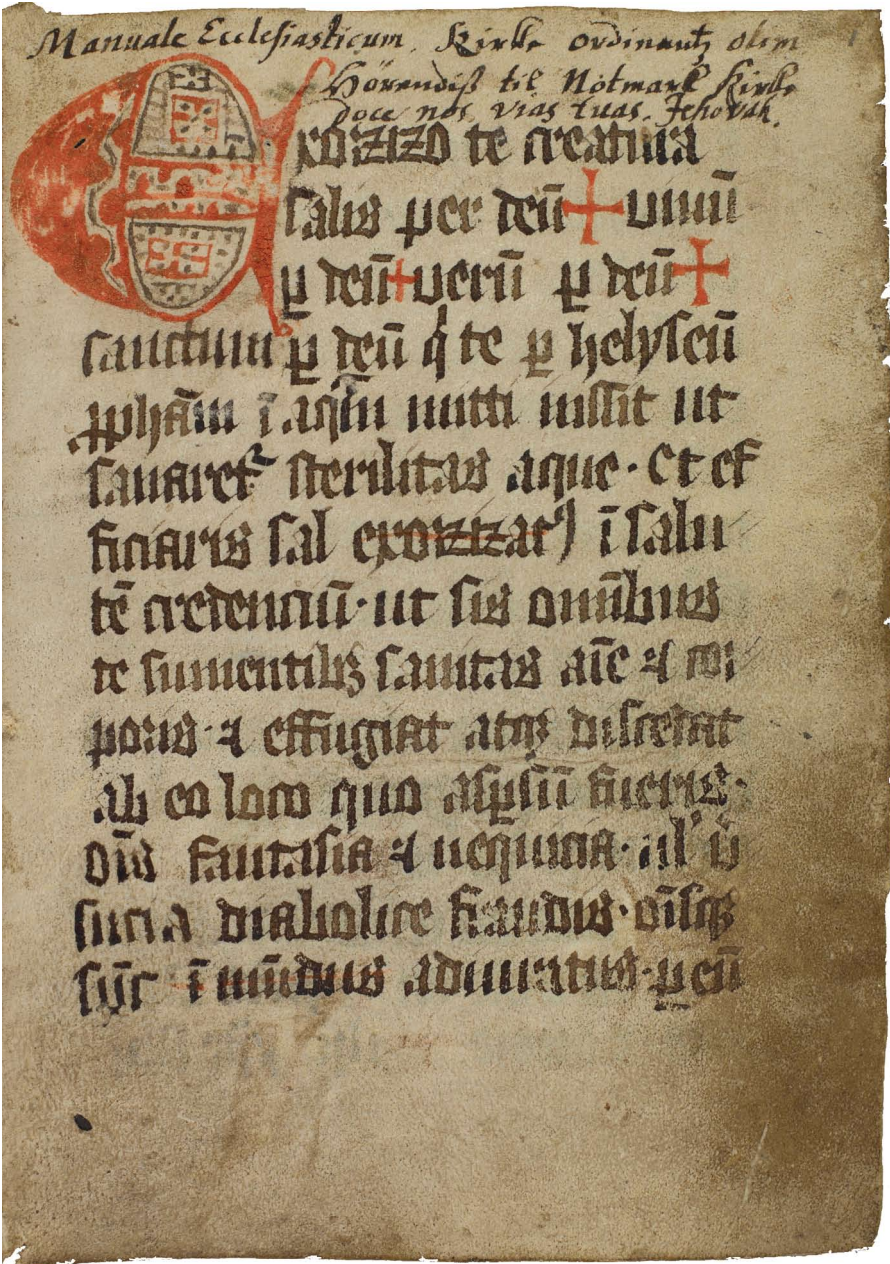 Manuale Ecclesiasticum. Kirke ordinantz olim
Hörendiß til Notmark Kirke
Doce nos vias tuas. Jehovah.
Exorzizo te creatura
salis per deū + uiuū
ꝑ deū + uerū ꝑ deū +
sanctum ꝑ deū qͥ te ꝑ helyseū
ꝓpham ī aqm mitti iussit ut
sanaretr sterilitas aque · Et ef
ficiaris sal exorzizatꝰ ī salu
tē credenciū · ut sis omībus
te sumentibꝫ sanitas aīe ⁊ cor
poris · ⁊ effugiat atqꝫ discedat
ab eo loco quo aspsū fueris ·
oīs fantasia ⁊ nequicia · ul' ū
sucia diabolice fraudis · oīsqꝫ
spc īmūdus adiuratus · ꝑ eū